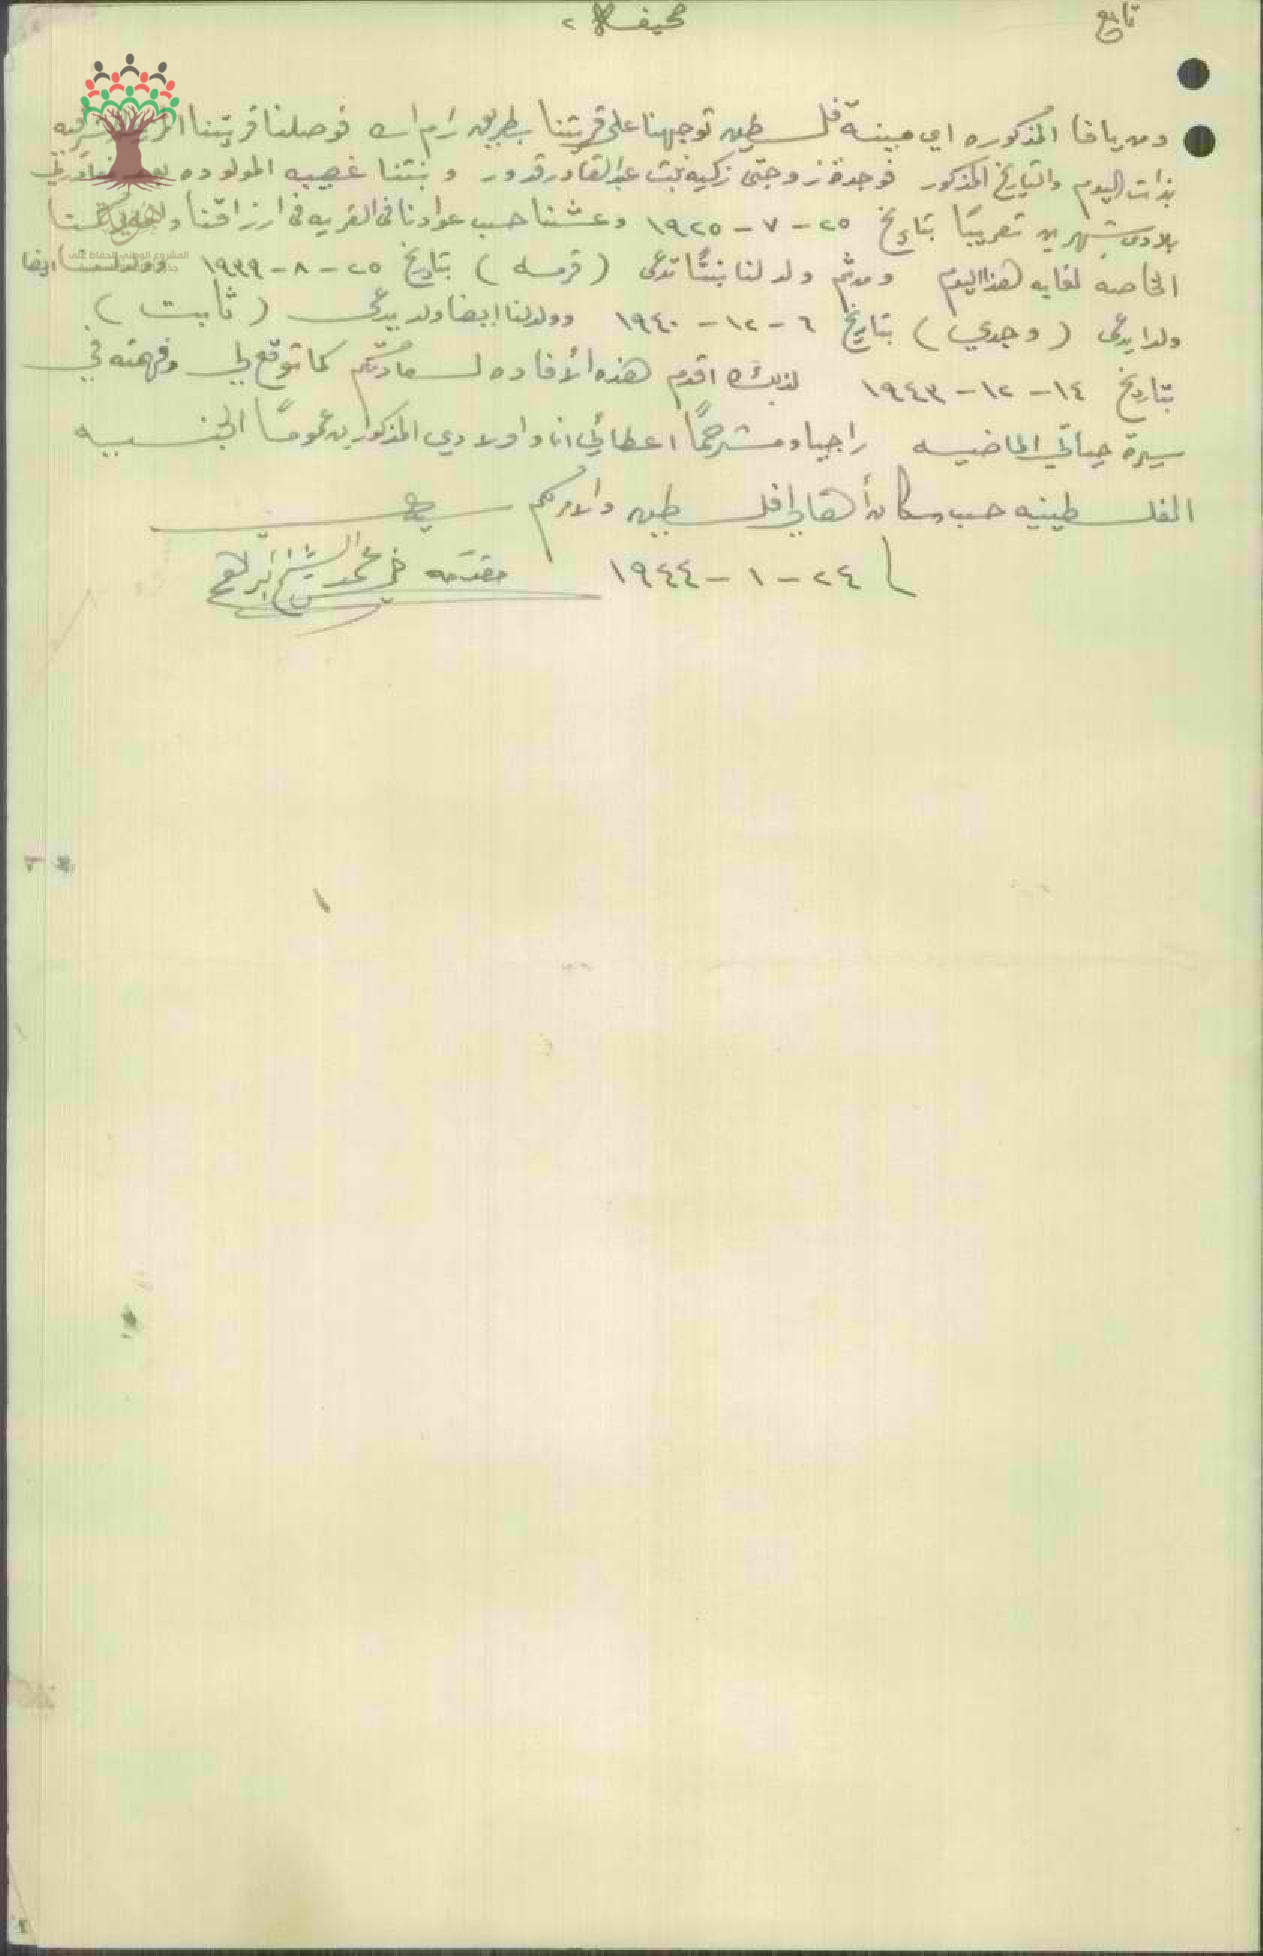 تابع
صحيفة ٢
ومن يافا المذكوره اي مينة فلسطين توجهنا على قريتنا بطريق رام الله فوصلنا قريتنا
بذات اليوم والتاريخ المذكور فوجدة زوجتي زكيه بنت عبد القادر قدور وبنتنا غصيبه المولوده بعد
بلادي شهرين تقريبًا بتاريخ ٢٥ - ٧ - ١٩٢٥ وعشنا حسب عوادنا في القريه في ارزاقنا
الخاصه لغايه هذا اليوم ومن ثم ولد لنا بنتًا تدعى ( ) بتاريخ ٢٥ - ٨ - ١٩٣٩ ايضا
ولدا يدعى ( وجدي ) بتاريخ ٦ - ١٢ - ١٩٤٠ وولد لنا ايضا ولد يدعى ( ثابت )
بتاريخ ١٤ - ١٢ - ١٩٤٣ لذلك اقدم هذه الأفاده لسعادتكم كما توقع لي وفهمته في
سيرة حياتي الماضيه راجيا ومسترحمًا اعطائي انا واولادي المذكورين عمومًا الجنسيه
الفلسطينيه حسب أهالي فلسطين والامر لكم سيدي
٢٤ - ١ - ١٩٤٤ مقدمه محمد الشيخ ابراهيم
المشروع الوطني للحفاظ على